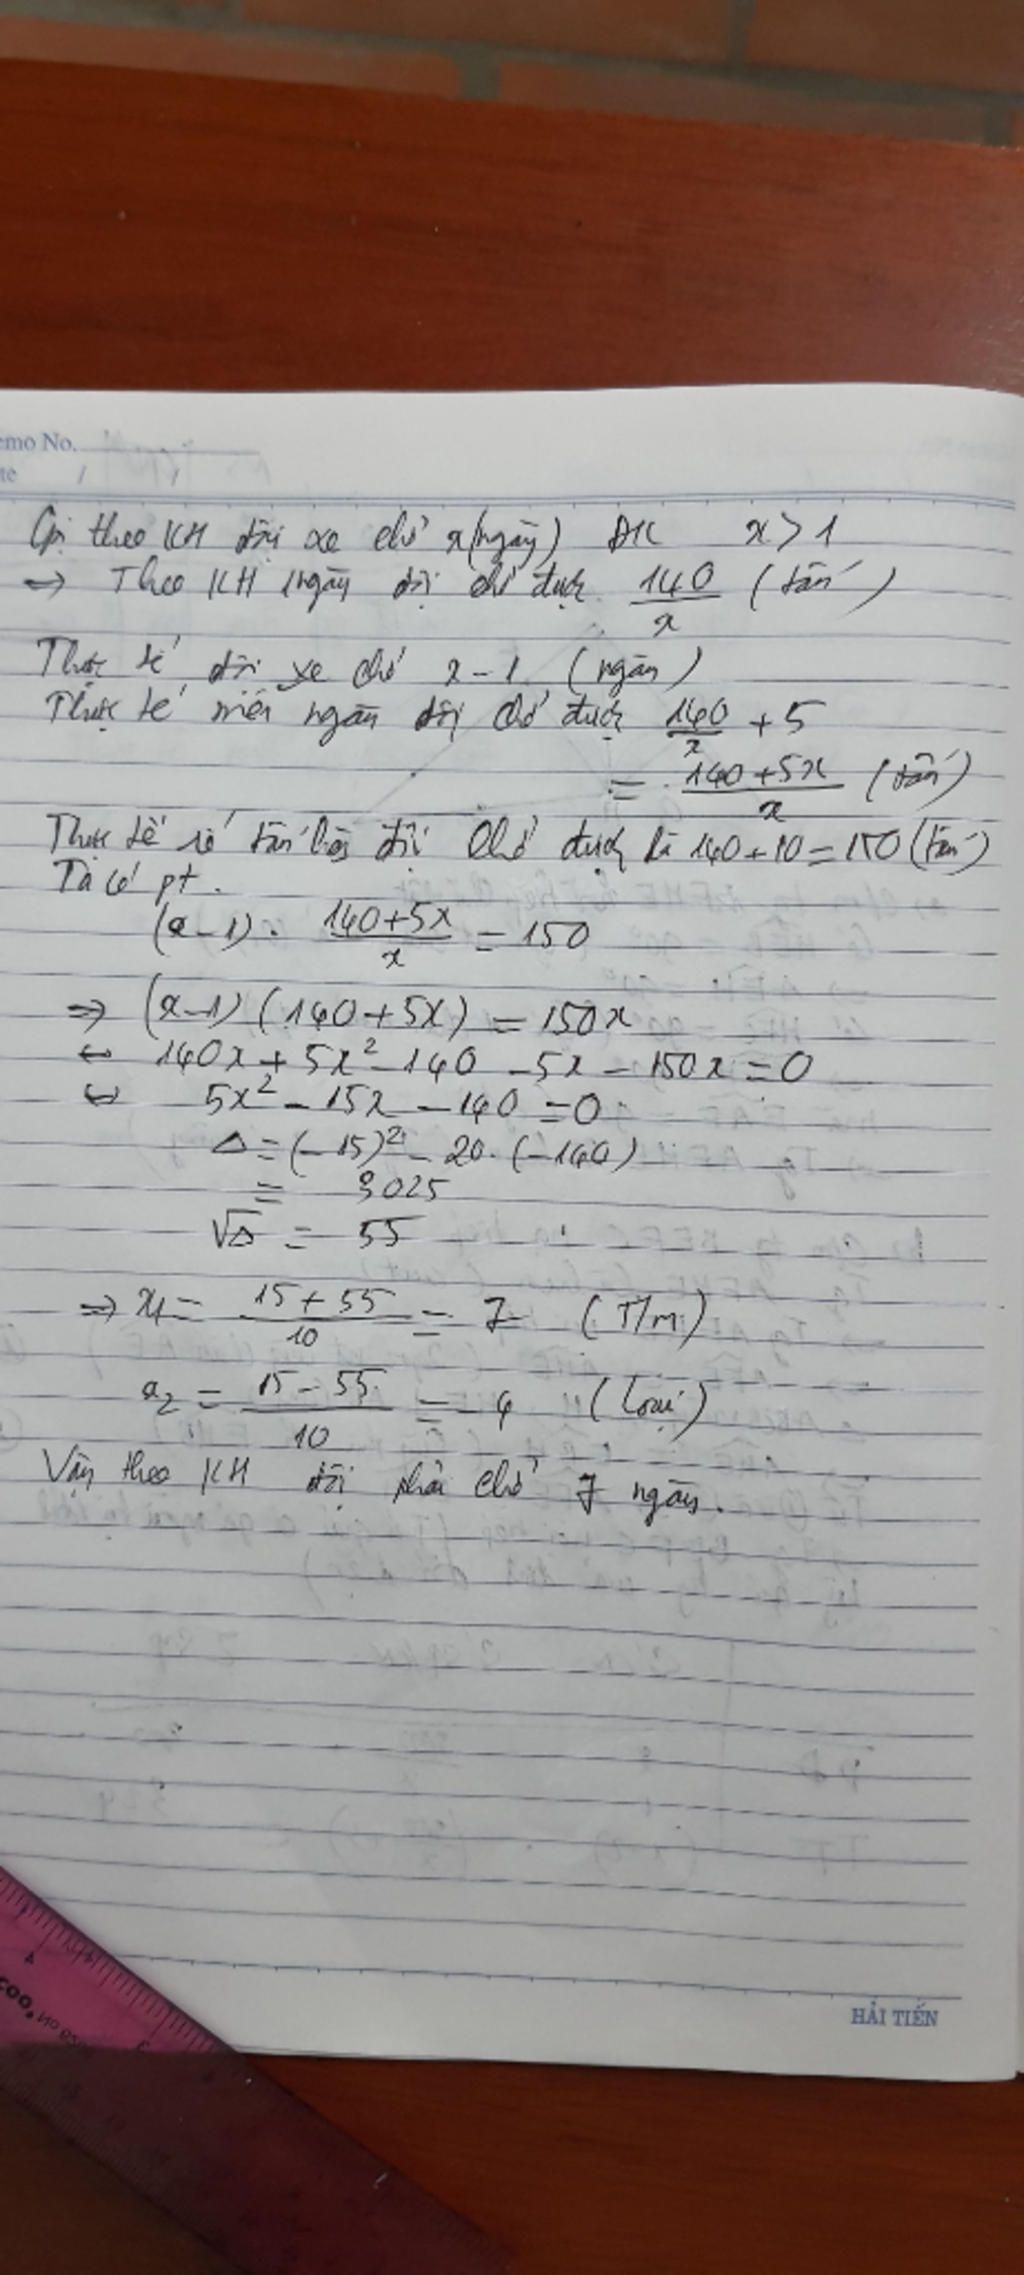 emo No.
te / /
Gọi theo KH đội xe chở x (ngày) ĐK x > 1
=> Theo KH 1 ngày đội chở được 140/x (tấn)
Thực tế đội xe chở x - 1 (ngày)
Thực tế mỗi ngày đội chở được 140/x + 5
= 140+5x/x (tấn)
Thực tế số tấn hàng đội chở được là 140 + 10 = 150 (tấn)
Ta có pt.
(x - 1) . 140+5x/x = 150
=> (x - 1) (140 + 5x) = 150x
<=> 140x + 5x² - 140 - 5x - 150x = 0
<=> 5x² - 15x - 140 = 0
Δ = (-15)² - 20. (-140)
= 3025
√Δ = 55
=> x₁ = 15 + 55/10 = 7 (T/m)
x₂ = 15 - 55/10 = -4 (loại)
Vậy theo KH đội phải chở 7 ngày.
HẢI TIẾN